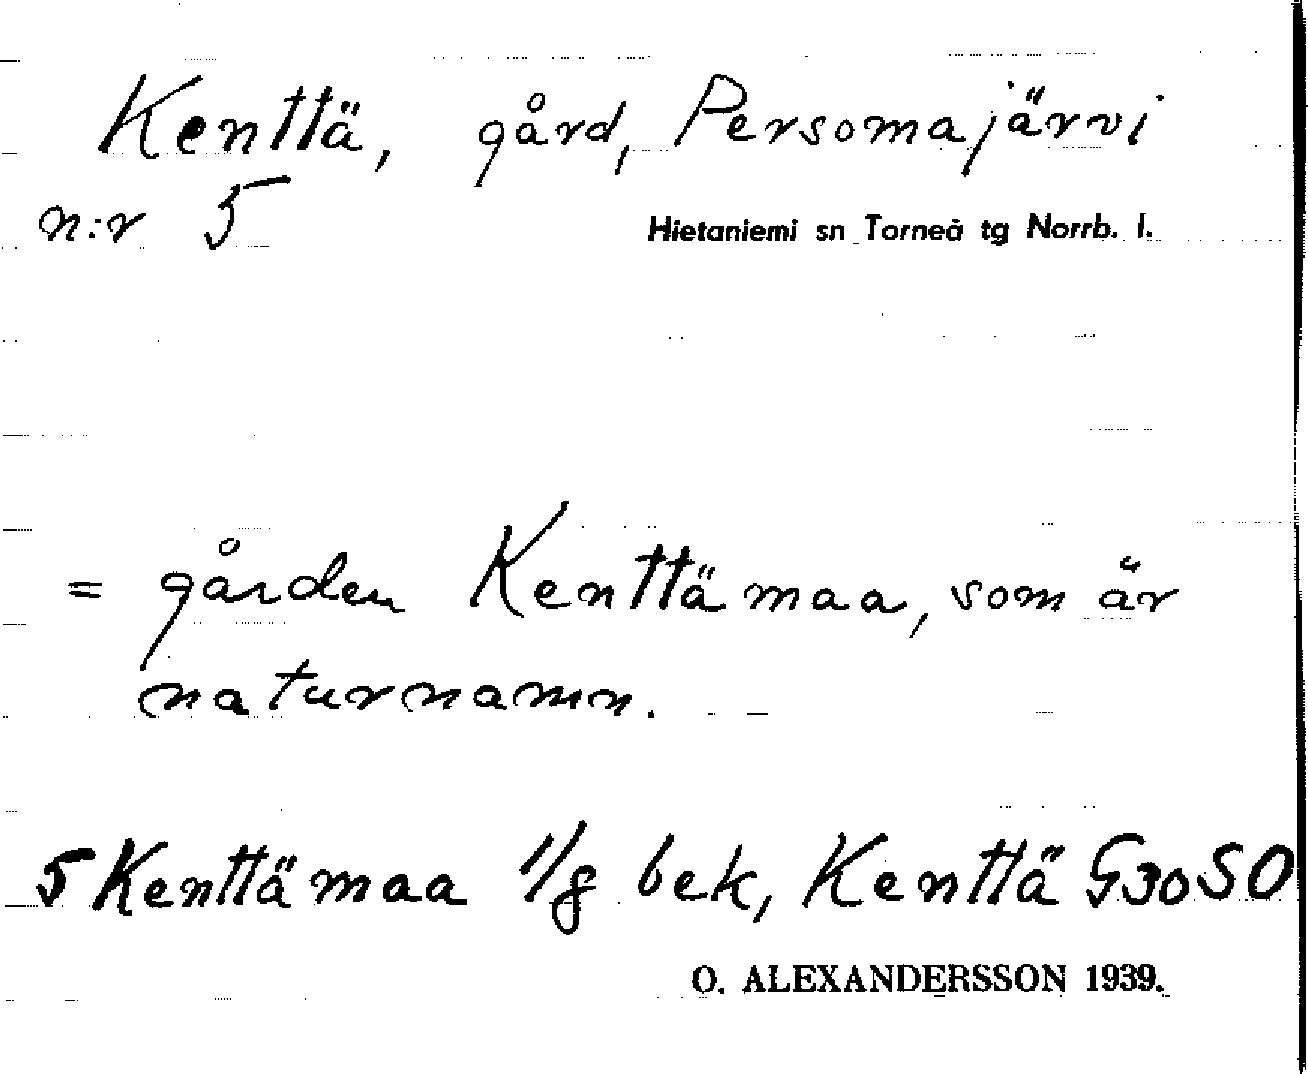 Kenttä, gård, Persomajärvi
n:r 5
Hietaniemi sn Torneå tg Norrb. l.
= gården Kenttämaa, som är
naturnamn.
5 Kenttämaa 1/8 bek, Kenttä G30SO
O. ALEXANDERSSON 1939.